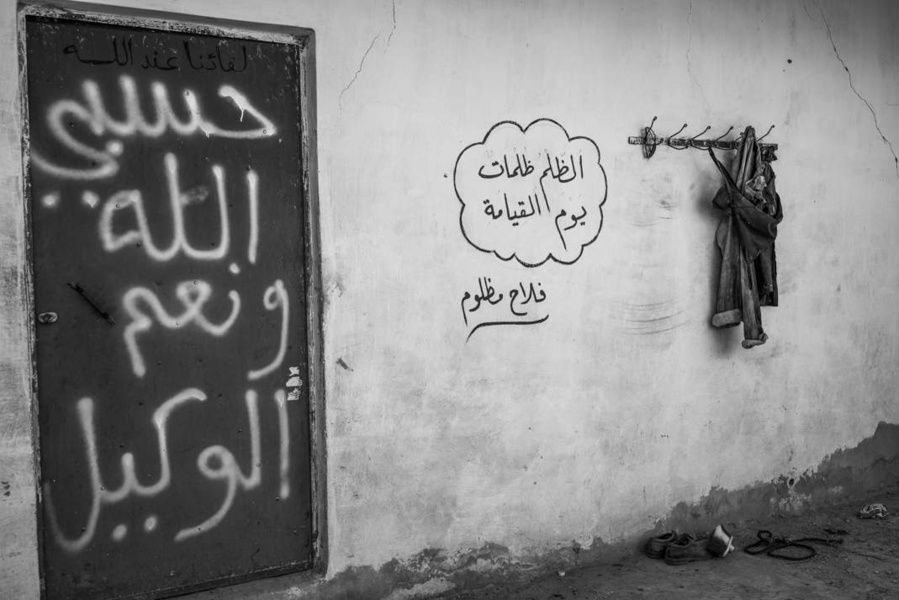 لقائنا عند اللـه
حسبي
الله
ونعم
الوكيل
الظلم ظلمات
يوم القيامة
فلاح مظلوم